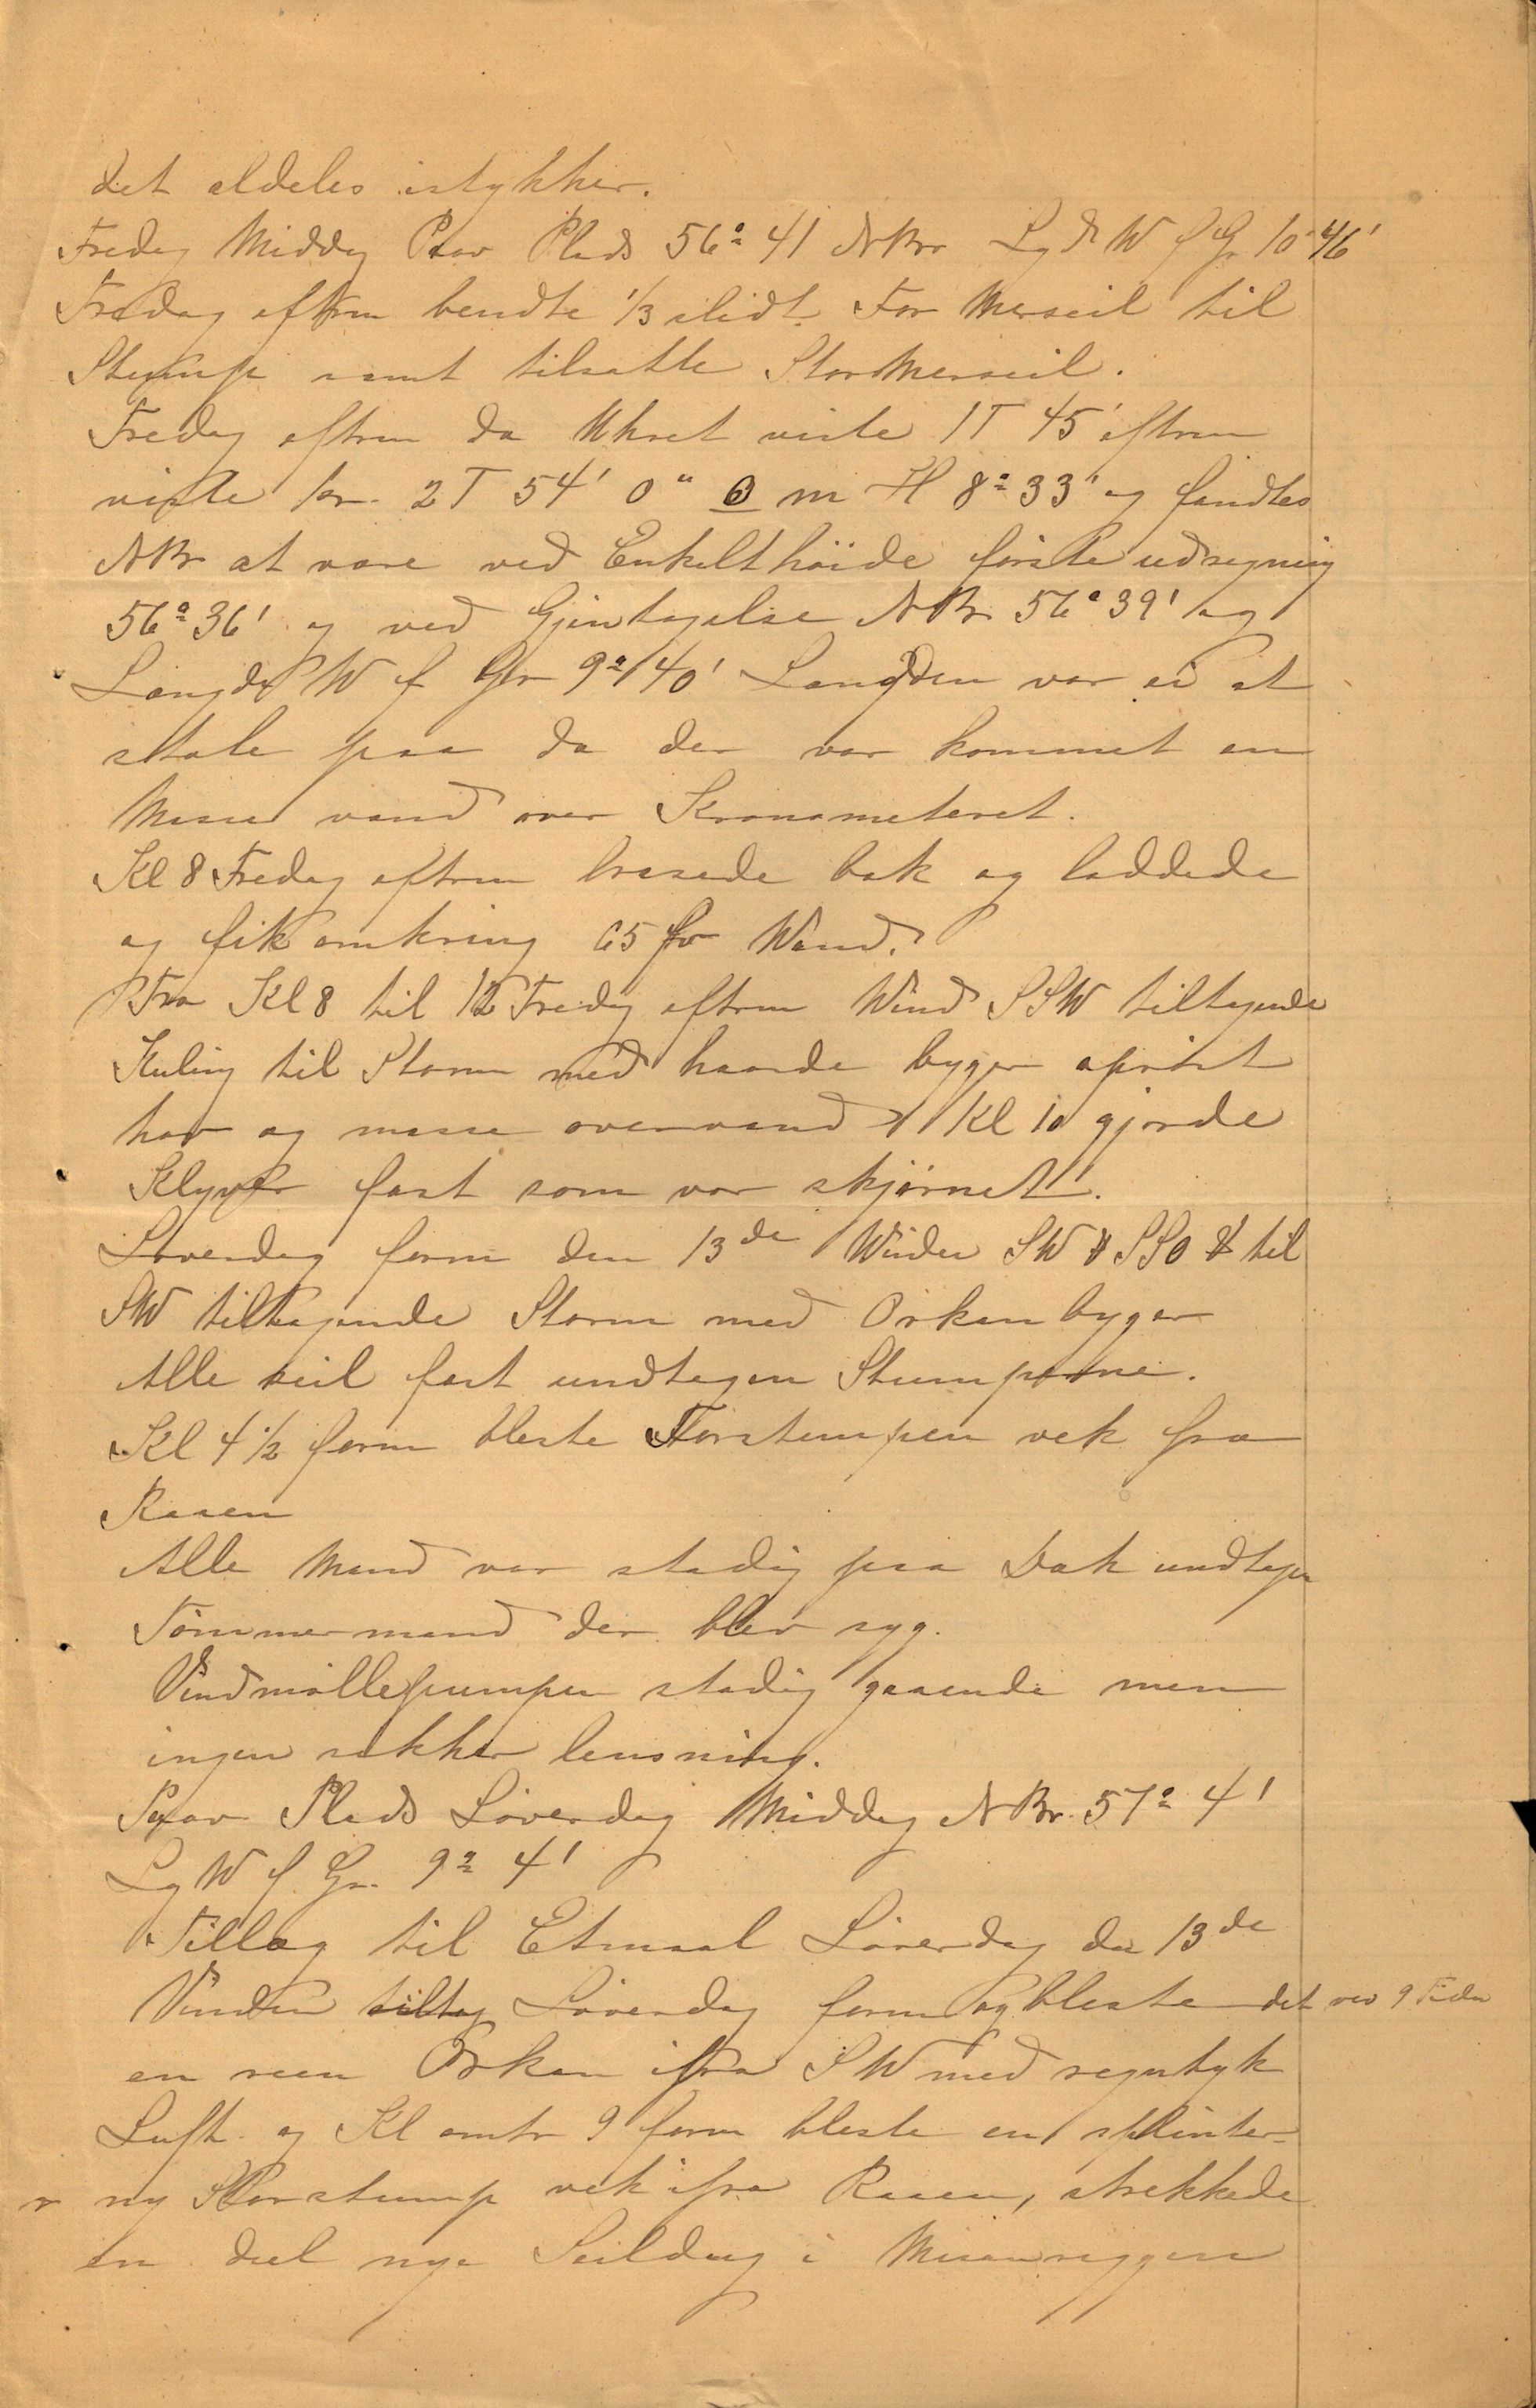 det aldeles istykker.
Fredag Middag Paav Plads 56° 41 NBr Lgd W f Gr 10° 46'
Fredag eftrm bendte 1/3 slidt For Merseil til
Stump samt tilsatte Stor Merseil.
Fredag eftrm da Uhret viste 1T 45' eftrm
viste kr. 2T 54' 0" m H 8° 33' og fandtes
NBr at være ved Enkelthöide förste udregning
56° 36' og ved Gjentagelse NBr. 56° 39' og
Længde W f Gr 9° 40' Længden var ei at
stole paa da der var kommet en
Masse vand over Kronometeret.
Kl 8 Fredag eftrm brasede bak og loddede
og fik omkring 65 fv Wand.
Fra Kl 8 til 12 Fredag eftrm Wind SSW tiltagende
Kuling til Storm med haarde byger oprört
hav og masse overvand Kl 10 gjorde
Klyver fast som var skjörnet.
Löverdag form den 13de Winden SW SSO til
SW tiltagende Storm med Orkan byger
Alle seil fast undtagen Stumperne.
Kl 4 1/2 form bleste Forstumpen vek fra
Raaen
Alle Mand var stadig paa Dæk undtagen
Tömmermand der blev syg.
Vindmöllepumpen stadig gaaende men
ingen sikker lensning.
Paav Plads Löverdag Middag NBr. 57° 41'
Lg W f Gr. 9° 41'
Tillæg til Etmaal Löverdag den 13de
Vinden tiltog Löverdag form og bleste det ved 9 Tiden
en reen Orkan ifra SW med regntyk
Luft og Kl omtr 9 form bleste en splinter-
ny Storstump vek ifra Raaen, strekkede
en deel nye Seildug i Mesanriggen